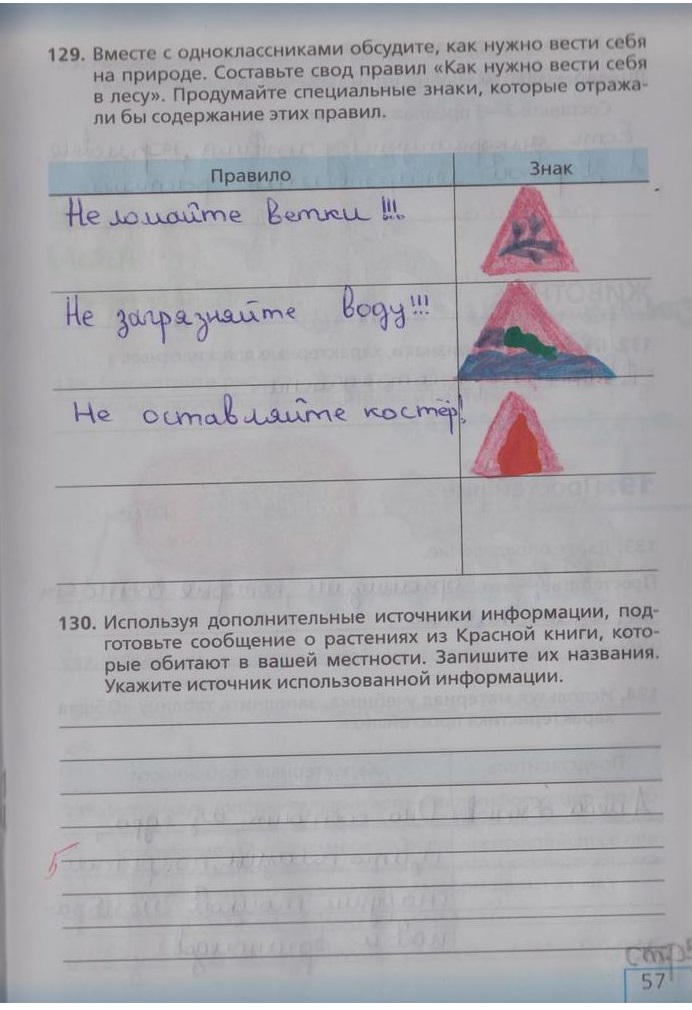 129. Вместе с одноклассниками обсудите, как нужно вести себя
на природе. Составьте свод правил «Как нужно вести себя
в лесу». Продумайте специальные знаки, которые отража-
ли бы содержание этих правил.
Правило Знак
Не ломайте ветки !!!
Не загрязняйте воду!!!
Не оставляйте костёр!
130. Используя дополнительные источники информации, под-
готовьте сообщение о растениях из Красной книги, кото-
рые обитают в вашей местности. Запишите их названия.
Укажите источник использованной информации.
5
стр
57